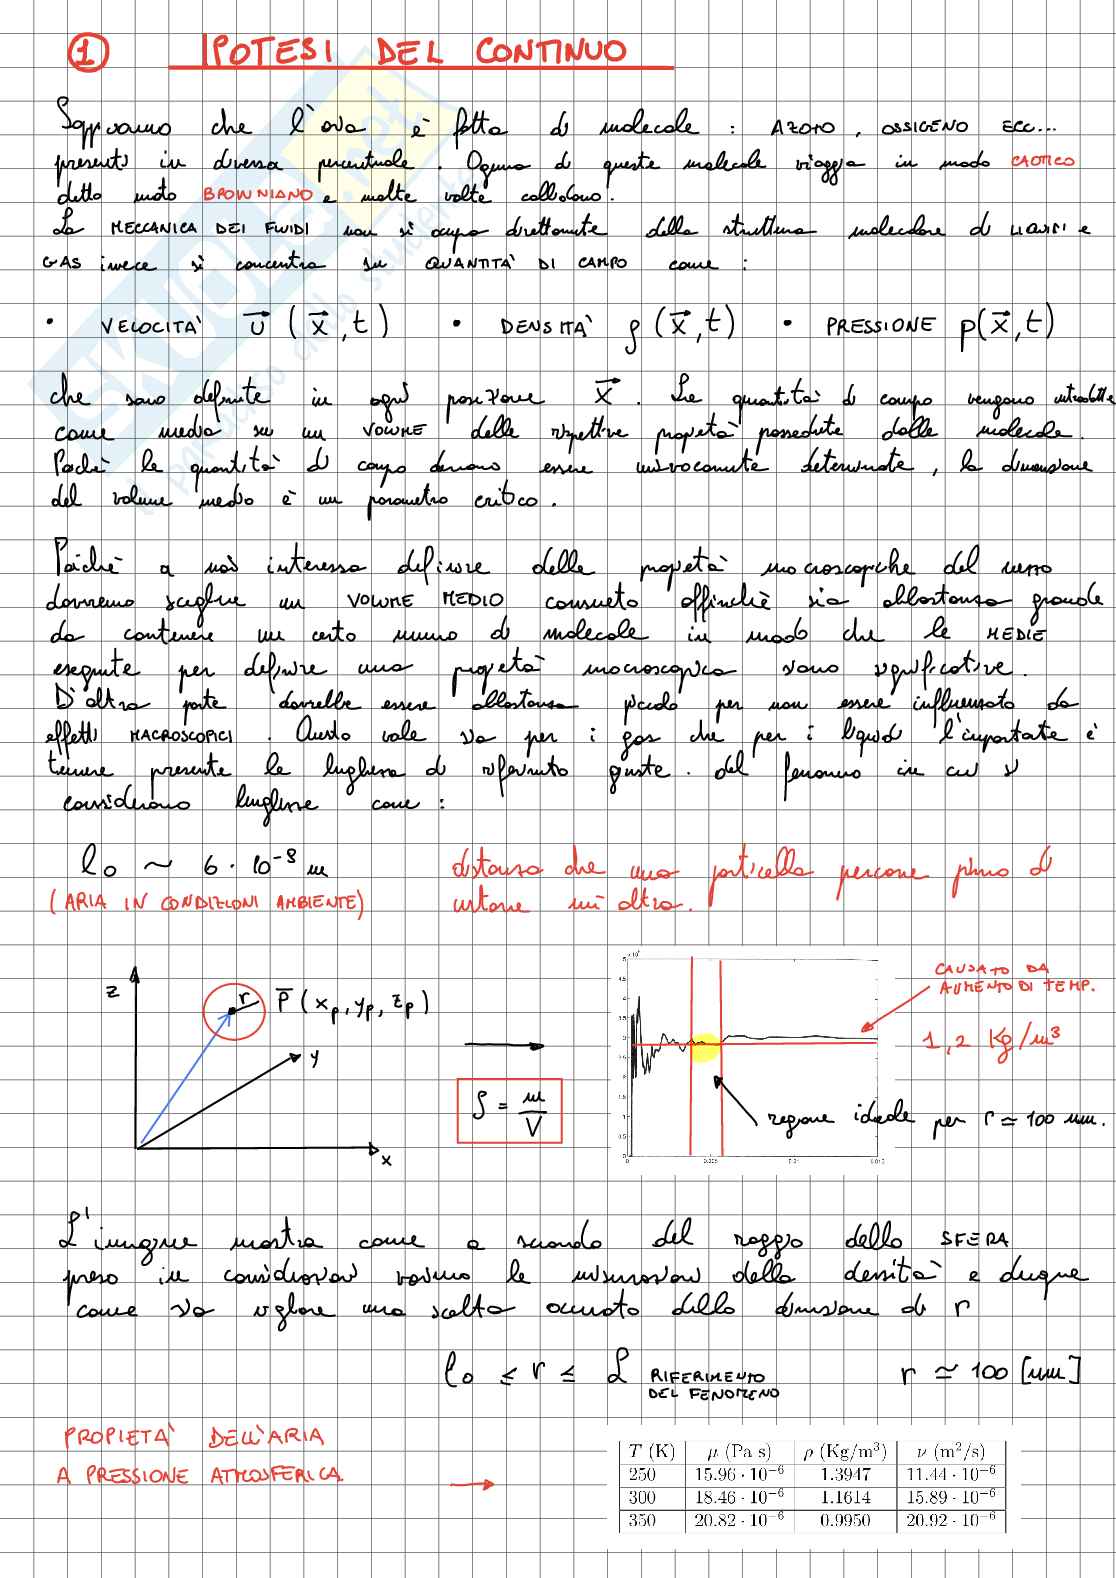 1 IPOTESI DEL CONTINUO
Sappiamo che l'aria è fatta di molecole : AZOTO , OSSIGENO ECC...
presenti in diversa percentuale . Ognuna di queste molecole viaggia in modo CAOTICO
detto moto BROWNIANO e molte volte collidono.
La MECCANICA DEI FLUIDI non si occupa direttamente della struttura molecolare di LIQUIDI e
GAS invece si concentra su QUANTITÀ DI CAMPO come :
• VELOCITÀ u⃗ (x⃗,t) • DENSITÀ ρ (x⃗,t) • PRESSIONE p(x⃗,t)
che sono definite in ogni posizione x⃗ . Le quantità di campo vengono introdotte
come media su un VOLUME delle rispettive propietà possedute dalle molecole.
Poichè le quantità di campo devono essere univocamente determinate , la dimensione
del volume medio è un parametro critico .
Poichè a noi interessa definire delle propietà macroscopiche del
dovremo scegliere un VOLUME MEDIO consueto affinchè sia abbastanza grande
da contenere un certo numero di molecole in modo che le MEDIE
eseguite per definire una propietà macroscopica siano significative.
D'altra parte dovrebbe essere abbastanza piccolo per non essere influenzato da
effetti MACROSCOPICI . Questo vale sia per i gas che per i liquidi l'importante è
tenere presente le lunghezze di riferimento giuste . del fenomeno in cui si
considerano lunghezze come :
l₀ ~ 6 · 10⁻⁸ m distanza che una particella percorre prima di
(ARIA IN CONDIZIONI AMBIENTE) urtarne un'altra.
z r P̄ (xₚ, yₚ, zₚ)
y
x
ρ = m/V
CAUSATO DA
AUMENTO DI TEMP.
1,2 Kg/m³
regione ideale per r ≃ 100 nm.
L'immagine mostra come a seconda del raggio della SFERA
preso in considerazione variano le misurazioni della densità e dunque
come sia migliore una scelta accurata della dimensione di r
l₀ ≤ r ≤ L RIFERIMENTO DEL FENOMENO r ≃ 100 [nm]
PROPIETÀ DELL'ARIA
A PRESSIONE ATMOSFERICA
T (K) μ (Pa s) ρ (Kg/m³) ν (m²/s)
250 15.96 · 10⁻⁶ 1.3947 11.44 · 10⁻⁶
300 18.46 · 10⁻⁶ 1.1614 15.89 · 10⁻⁶
350 20.82 · 10⁻⁶ 0.9950 20.92 · 10⁻⁶